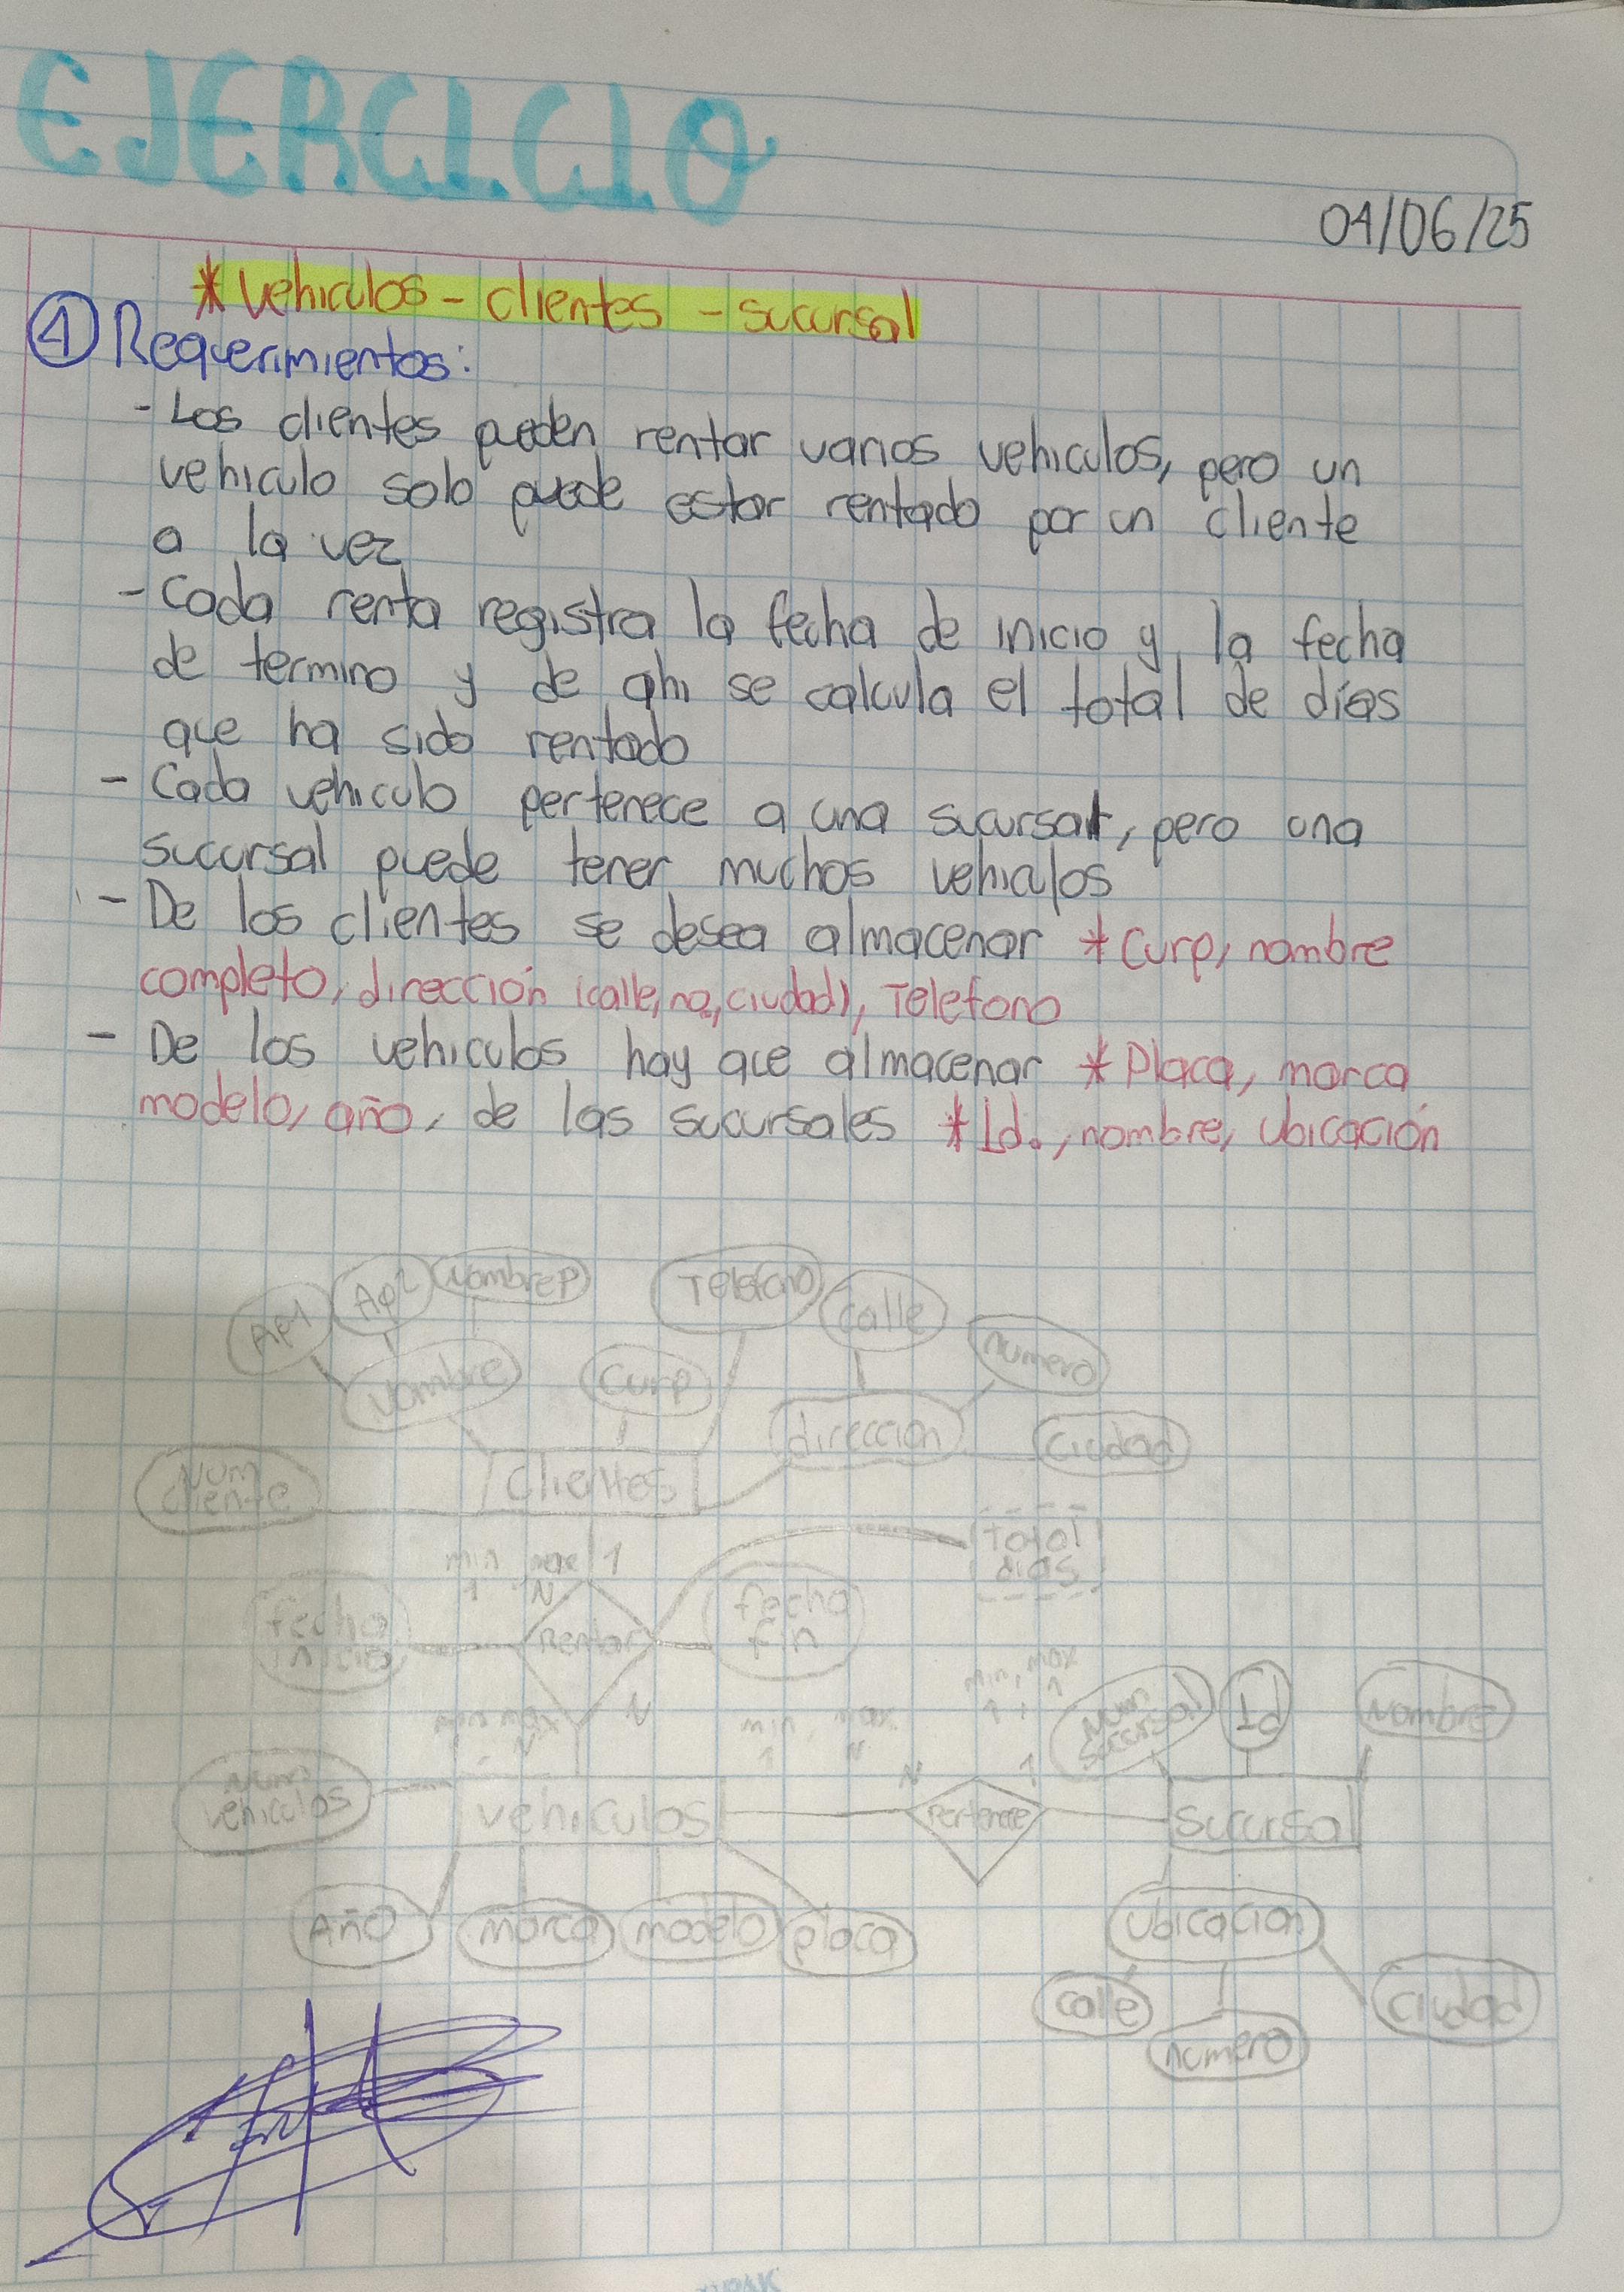 EJERCICIO
04/06/25
* Vehiculos - clientes - sucursal
① Requerimientos:
- Los clientes pueden rentar varios vehiculos, pero un
vehiculo solo puede estar rentado por un cliente
a la vez
- Cada renta registra la fecha de inicio y la fecha
de termino y de ahi se calcula el total de días
que ha sido rentado
- Cada vehiculo pertenece a una sucursal, pero una
sucursal puede tener muchos vehiculos
- De los clientes se desea almacenar * Curp, nombre
completo, dirección (calle, no., ciudad), Telefono
- De los vehiculos hay que almacenar * Placa, marca
modelo, año, de las sucursales * Id., nombre, ubicación
Ap1 Ap2 Nombrep Telefono calle
numero
Nombre Curp
direccion ciudad
Num
cliente
Clientes
total
dias
min max 1
1 , N
fecha
inicio
Rentar
fecha
fin
min, max
1 , 1
min max N
N
min, max
1 N
Num
sucursal
Id Nombre
N 1
Num
vehiculos
vehiculos Pertenece Sucursal
Año marca modelo placa ubicacion
calle numero ciudad